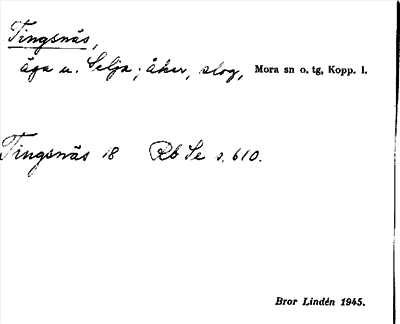 Tingsnäs,
äga u. Selja; åker, slog, Mora sn o. tg, Kopp. l.
Tingsnäs 18 Rb Se s. 610.
Bror Lindén 1945.